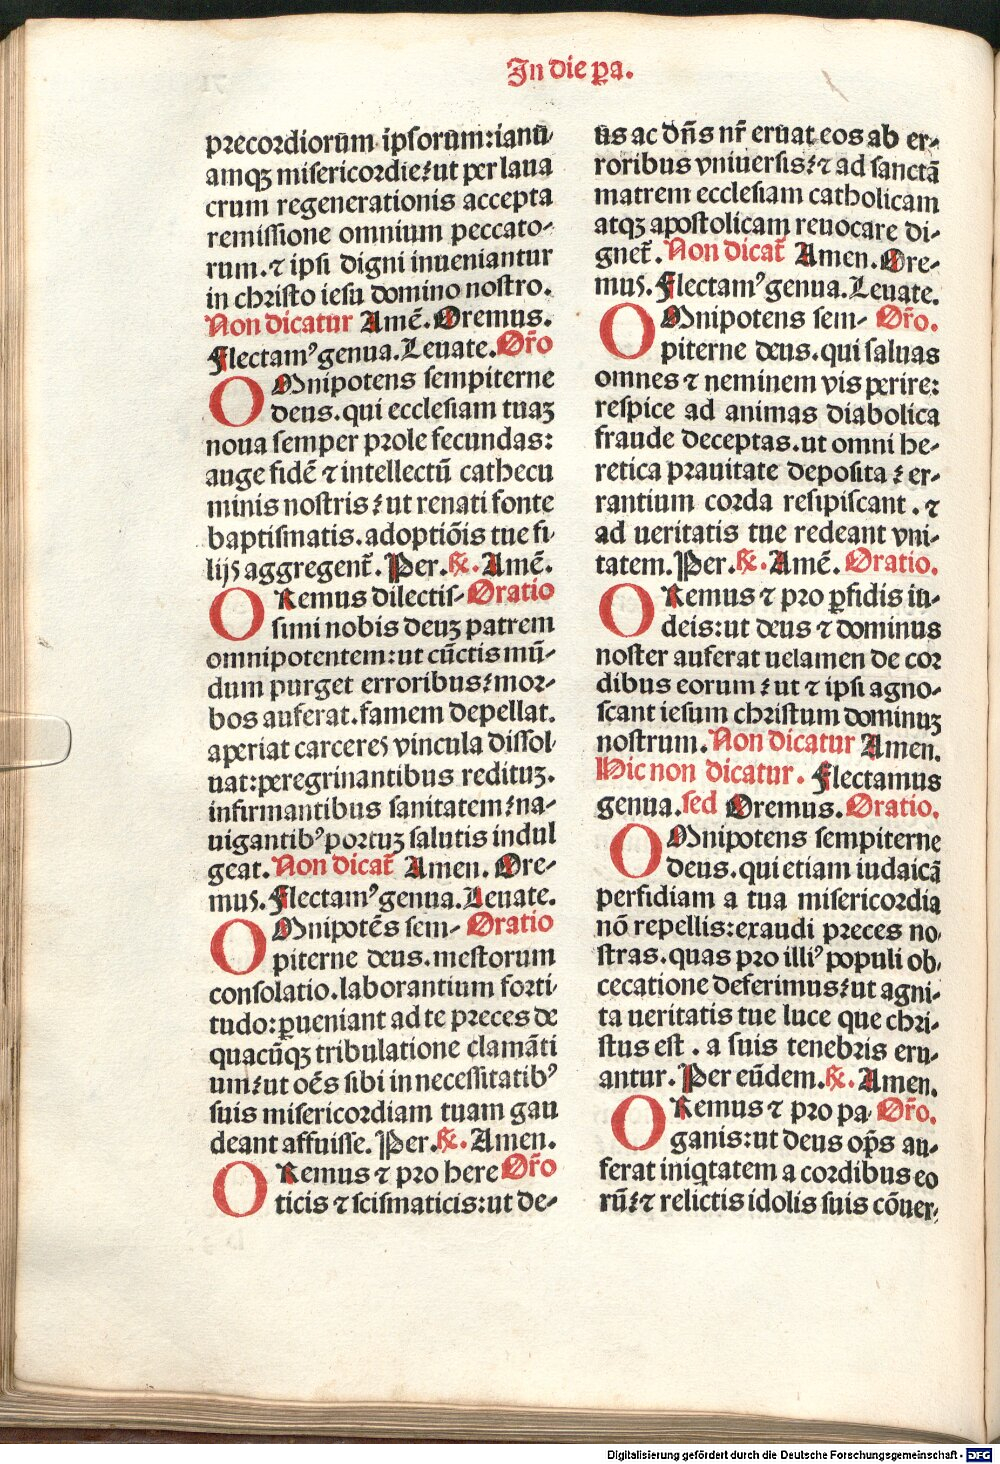 In die pa.
precordiorum ipsorum: ianu
amqꝫ misericordie: ut per laua
crum regenerationis accepta
remissione omnium peccato-
rum. ⁊ ipsi digni inueniantur
in christo iesu domino nostro.
Non dicatur Amē. Oremus.
Flectamꝰ genua. Leuate. Or̄o
OMnipotens sempiterne
deus. qui ecclesiam tuaꝫ
noua semper prole fecundas:
auge fidē ⁊ intellectū cathecu
minis nostris: ut renati fonte
baptismatis. adoptiōis tue fi-
lijs aggregent̄. Per. ℟. Amē.
ORemus dilectis- Oratio
simi nobis deuꝫ patrem
omnipotentem: ut cūctis mū-
dum purget erroribus: mor-
bos auferat. famem depellat.
aperiat carceres vincula dissol-
uat: peregrinantibus redituꝫ.
infirmantibus sanitatem: na-
uigantibꝰ portuꝫ salutis indul
geat. Non dicat̄ Amen. Ore-
mus. Flectamꝰ genua. Leuate.
OMnipotēs sem- Oratio
piterne deus. mestorum
consolatio. laborantium forti-
tudo: ꝑueniant ad te preces de
quacūqꝫ tribulatione clamāti
um: ut oēs sibi in necessitatibꝰ
suis misericordiam tuam gau
deant affuisse. Per. ℟. Amen.
ORemus ⁊ pro here Or̄o
ticis ⁊ scismaticis: ut de-
us ac dn̄s nr̄ eruat eos ab er-
roribus vniuersis: ⁊ ad sanctā
matrem ecclesiam catholicam
atqꝫ apostolicam reuocare di-
gnet̄. Non dicat̄ Amen. Ore-
mus. Flectamꝰ genua. Leuate.
OMnipotens sem- Or̄o.
piterne deus. qui saluas
omnes ⁊ neminem vis perire:
respice ad animas diabolica
fraude deceptas. ut omni he-
retica prauitate deposita: er-
rantium corda resipiscant. ⁊
ad ueritatis tue redeant vni-
tatem. Per. ℟. Amē. Oratio.
ORemus ⁊ pro ꝑfidis iu-
deis: ut deus ⁊ dominus
noster auferat uelamen de cor
dibus eorum: ut ⁊ ipsi agno-
scant iesum christum dominuꝫ
nostrum. Non dicatur Amen.
Hic non dicatur. Flectamus
genua. sed Oremus. Oratio.
OMnipotens sempiterne
deus. qui etiam iudaicā
perfidiam a tua misericordia
nō repellis: exaudi preces no-
stras. quas pro illiꝰ populi ob-
cecatione deferimus: ut agni-
ta ueritatis tue luce que chri-
stus est. a suis tenebris eru-
antur. Per eūdem. ℟. Amen.
ORemus ⁊ pro pa- Or̄o.
ganis: ut deus op̄s au-
ferat iniqtatem a cordibus eo
rū: ⁊ relictis idolis suis cōuer-
Digitalisierung gefördert durch die Deutsche Forschungsgemeinschaft - DFG